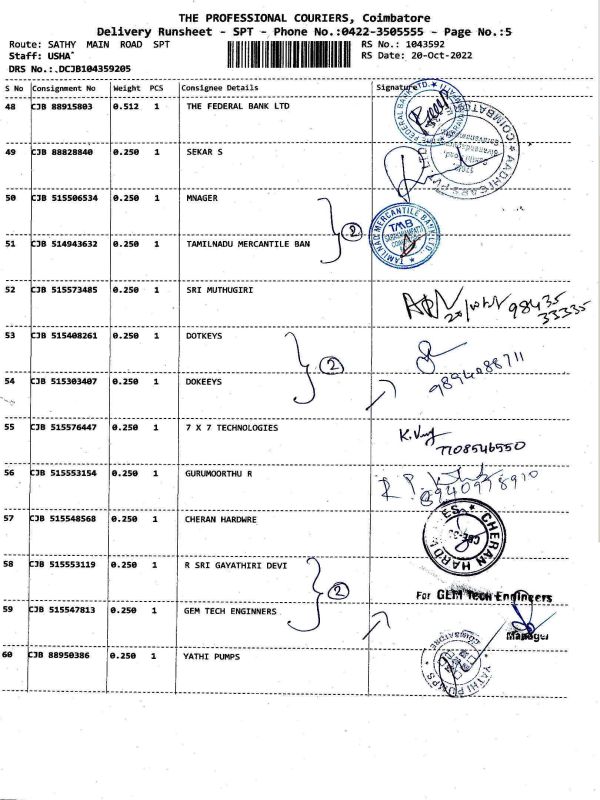 THE PROFESSIONAL COURIERS, Coimbatore
Delivery Runsheet - SPT - Phone No.:0422-3505555 - Page No.:5
Route: SATHY MAIN ROAD SPT RS No.: 1043592
Staff: USHA RS Date: 20-Oct-2022
DRS No.:.DCJB104359205
S No Consignment No Weight PCS Consignee Details Signature
48 CJB 88915803 0.512 1 THE FEDERAL BANK LTD
49 CJB 88828840 0.250 1 SEKAR S
50 CJB 515506534 0.250 1 MNAGER
2
51 CJB 514943632 0.250 1 TAMILNADU MERCANTILE BAN
TAMILNAD MERCANTILE BANK LTD.
TMB
52 CJB 515573485 0.250 1 SRI MUTHUGIRI
98435
33335
53 CJB 515408261 0.250 1 DOTKEYS
2
9894088711
54 CJB 515303407 0.250 1 DOKEEYS
55 CJB 515576447 0.250 1 7 X 7 TECHNOLOGIES
7708546550
56 CJB 515553154 0.250 1 GURUMOORTHU R
8940978910
57 CJB 515548568 0.250 1 CHERAN HARDWRE
CHERAN HARDW
58 CJB 515553119 0.250 1 R SRI GAYATHIRI DEVI
2
For GEM Tech Engineers
59 CJB 515547813 0.250 1 GEM TECH ENGINNERS
Manager
60 CJB 88950386 0.250 1 YATHI PUMPS
YATHI PUMPS
COIMBATORE